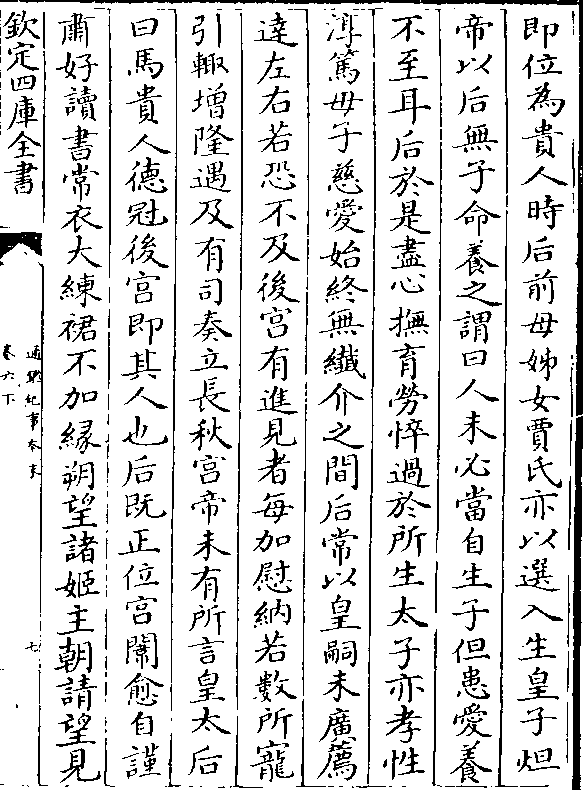 即位為貴人時后前母姊女賈氏亦以選入生皇子炟
帝以后無子命養之謂曰人未必當自生子但患愛養
不至耳后於是盡心撫育勞悴過於所生太子亦孝性
淳篤母子慈愛始終無纖介之間后常以皇嗣未廣薦
達左右若恐不及後宮有進見者每加慰納若數所寵
引輙增隆遇及有司奏立長秋宮帝未有所言皇太后
曰馬貴人德冠後宮即其人也后既正位宮闈愈自謹
肅好讀書常衣大練裙不加緣朔望諸姬主朝請望見
欽定四庫全書
通鑑紀事本末
卷六下
七